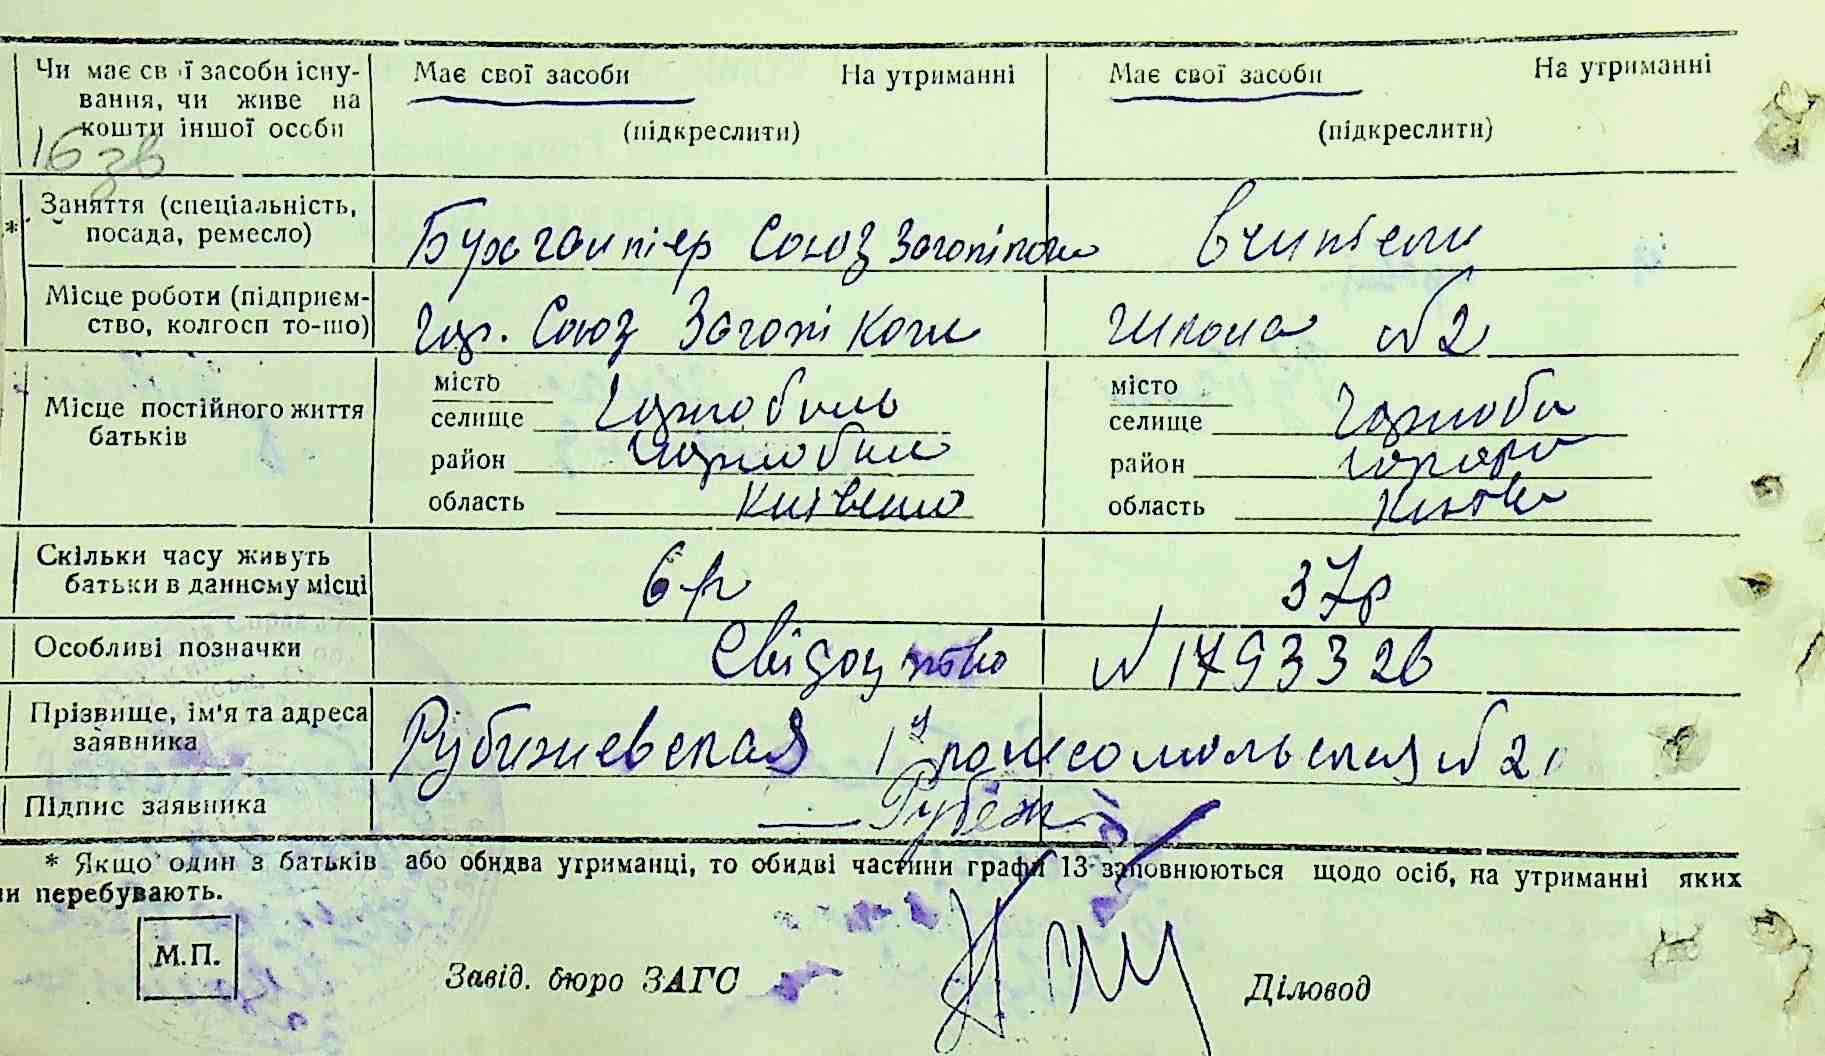 Чи має свої засоби існу- Має свої засоби На утриманні Має свої засоби На утриманні
вання, чи живе на
кошти іншої особи (підкреслити) (підкреслити)
16 зв
Заняття (спеціальність,
* посада, ремесло) Бухгалтер Союз Вчитель
Місце роботи (підприєм-
ство, колгосп то-що) Чор. Союз Школа №2
місто місто
Місце постійного життя селище Чорнобиль селище Чорноби
батьків
район Чорнобил район
область область
Скільки часу живуть
батьки в данному місці 6 р 37р
Особливі позначки Свідоцтво №1793326
Прізвище, ім'я та адреса
заявника комсомольская №
Підпис заявника Рубеж
* Якщо один з батьків або обидва утриманці, то обидві частини графи 13 заповнюються щодо осіб, на утриманні яких
ни перебувають.
М.П.
Завід. бюро ЗАГС Діловод